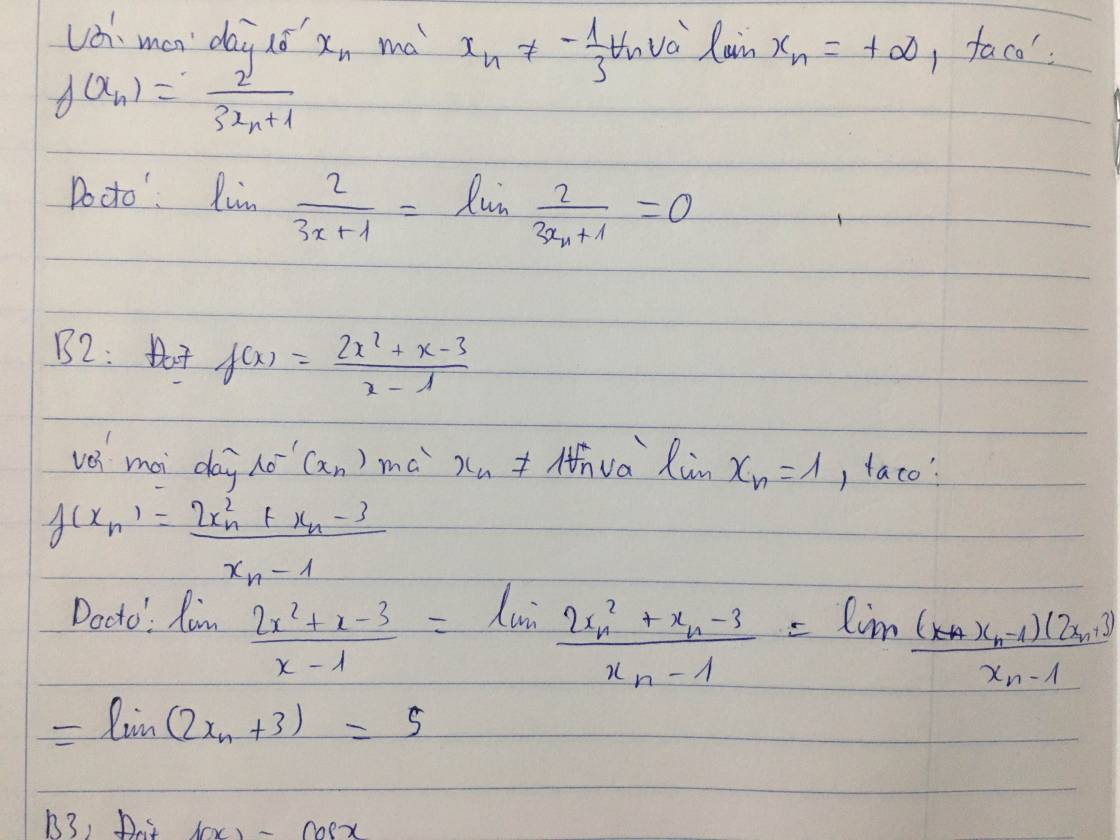 Với mọi dãy số xₙ mà xₙ ≠ -1/3 ∀n và lim xₙ = +∞, ta có:
f(xₙ) = 2/(3xₙ+1)
Do đó: lim 2/(3x+1) = lim 2/(3xₙ+1) = 0
B2: Đặt f(x) = (2x² + x - 3)/(x - 1)
với mọi dãy số (xₙ) mà xₙ ≠ 1 ∀n và lim xₙ = 1, ta có:
f(xₙ) = (2xₙ² + xₙ - 3)/(xₙ - 1)
Do đó: lim (2x² + x - 3)/(x - 1) = lim (2xₙ² + xₙ - 3)/(xₙ - 1) = lim (xₙ - 1)(2xₙ + 3)/(xₙ - 1)
= lim (2xₙ + 3) = 5
B3: Đặt f(x) = cosx